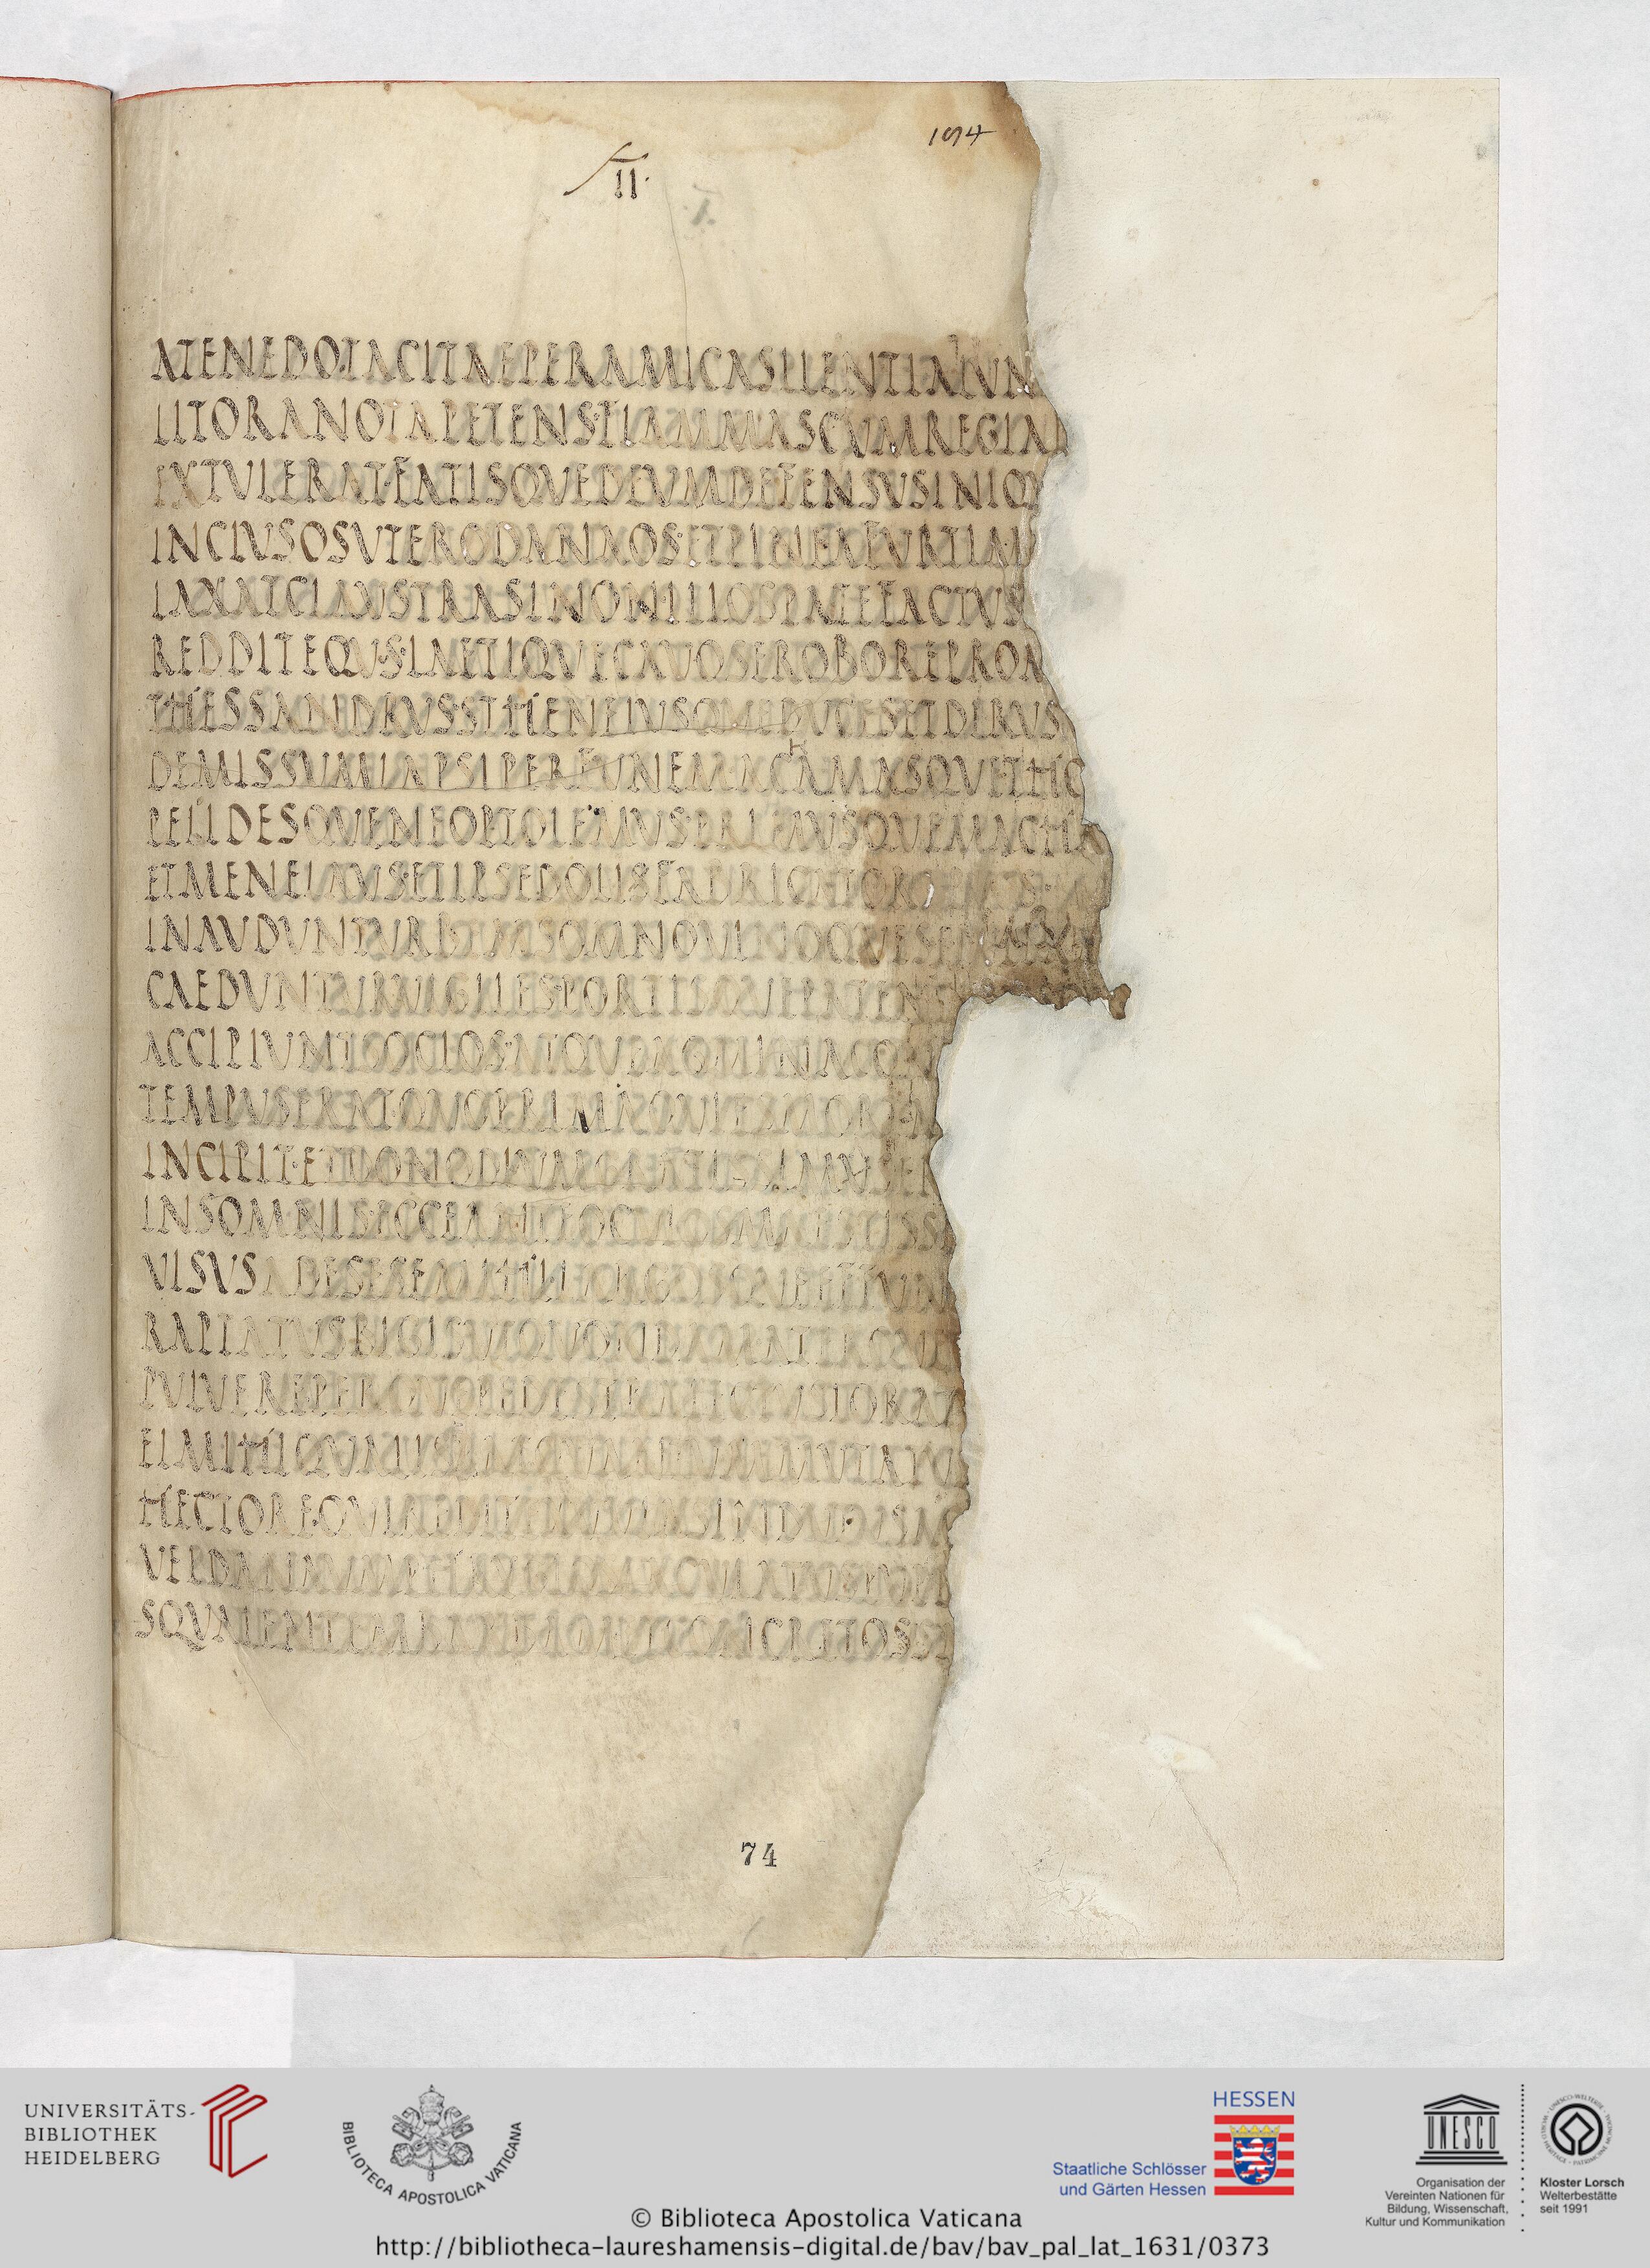 II·
194
ATENEDOTACITAEPERAMICASILENTIALUN
LITORANOTAPETENS·FLAMMASCUMREGIA
EXTULERAT·FATISQUEDEUMDEFENSUSINIQ
INCLUSOSUTERODANAOS·ETPINEAFURTIM
LAXATCLAUSTRASINON·ILLOSPATEFACTUS
REDDITEQUS·LAETIQUECAVOSEROBOREPROM
THESSANDRUS·STHENELUSQUEDUCESETDIRUS
DEMISSUMLAPSIPERFUNEM·ACAMASQUETHO
PELIDESQUENEOPTOLEMUS·PRIMUSQUEMACHA
ETMENELAUS·ETIPSEDOLIFABRICATOR
INVADUNTURBEMSOMNOVINOQUESEPULTAM
CAEDUNTURVIGILES·PORTISQUEPATEN
ACCIPIUNTSOCIOS·ATQUEAGMINACON
TEMPUSERAT·QUOPRIMAQUIESMOR
INCIPIT·ETDONODIVUMGRATISSIMA
INSOMNIS·ECCEANTEOCULOSMAESTISSI
VISUSADESSEMIHILARGOSQUEEFFUN
RAPTATUSBIGISUTQUONDAMATER
PULVEREPERQUEPEDESTRAIECTUSLORA
EIMIHIQUALISERATQUANTUMMUTATU
HECTORE·QUIREDIT
VELDANAUM
SQUALENTEMBARBAMETCONCRETOS
74
UNIVERSITÄTS-
BIBLIOTHEK
HEIDELBERG
BIBLIOTECA APOSTOLICA VATICANA
HESSEN
Staatliche Schlösser
und Gärten Hessen
UNESCO
Organisation der
Vereinten Nationen für
Bildung, Wissenschaft,
Kultur und Kommunikation
Kloster Lorsch
Welterbestätte
seit 1991
© Biblioteca Apostolica Vaticana
http://bibliotheca-laureshamensis-digital.de/bav/bav_pal_lat_1631/0373